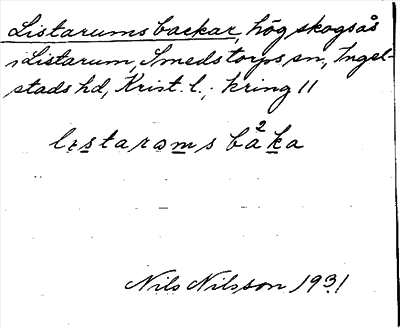 Listarums backar, hög skogsås
i Listarum, Smedstorps sn, Ingel-
stads hd, Krist. l.; kring 11
lɩstarəms bA²ka
Nils Nilsson 1931